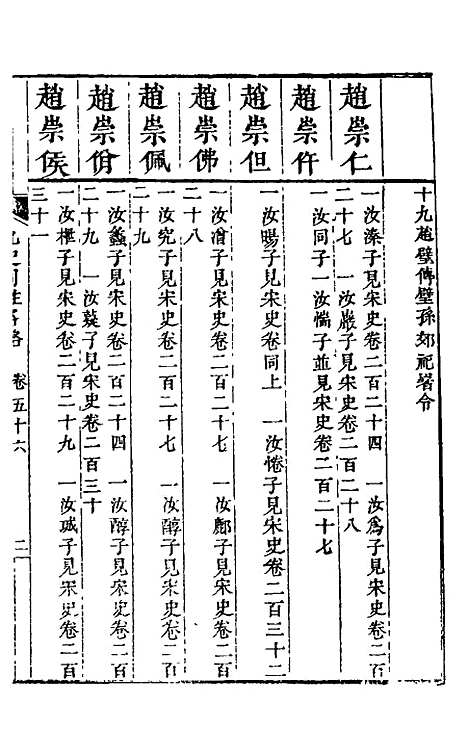 十九趙璧傳璧孫郊祀署令
趙崇仁
一汝溱子見宋史卷二百二十四　一汝爲子見宋史卷二百
二十七　一汝嚴子見宋史卷二百二十八
趙崇仵
一汝同子一汝惴子並見宋史卷二百二十七
趙崇但
一汝暘子見宋史卷同上　一汝惓子見宋史卷二百三十二
趙崇佛
一汝澮子見宋史卷二百二十七　一汝鄜子見宋史卷二百
二十八
趙崇佩
一汝究子見宋史卷二百二十七　一汝醇子見宋史卷二百
二十九
趙崇
一汝蠡子見宋史卷二百二十四　一汝醇子見宋史卷二百
二十九　一汝薿子見宋史卷二百三十
趙崇侯
一汝 子見宋史卷二百二十九　一汝珹子見宋史卷二百
三十一
九史同姓名略　卷五十六　二